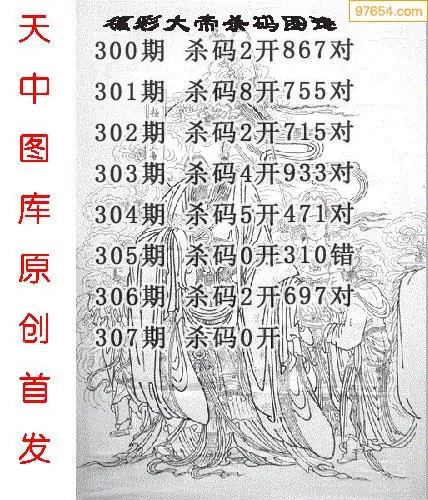 97654.com
福彩大帝杀码图谜
300期 杀码2开867对
301期 杀码8开755对
302期 杀码2开715对
303期 杀码4开933对
304期 杀码5开471对
305期 杀码0开310错
306期 杀码2开697对
307期 杀码0开
天中图库原创首发